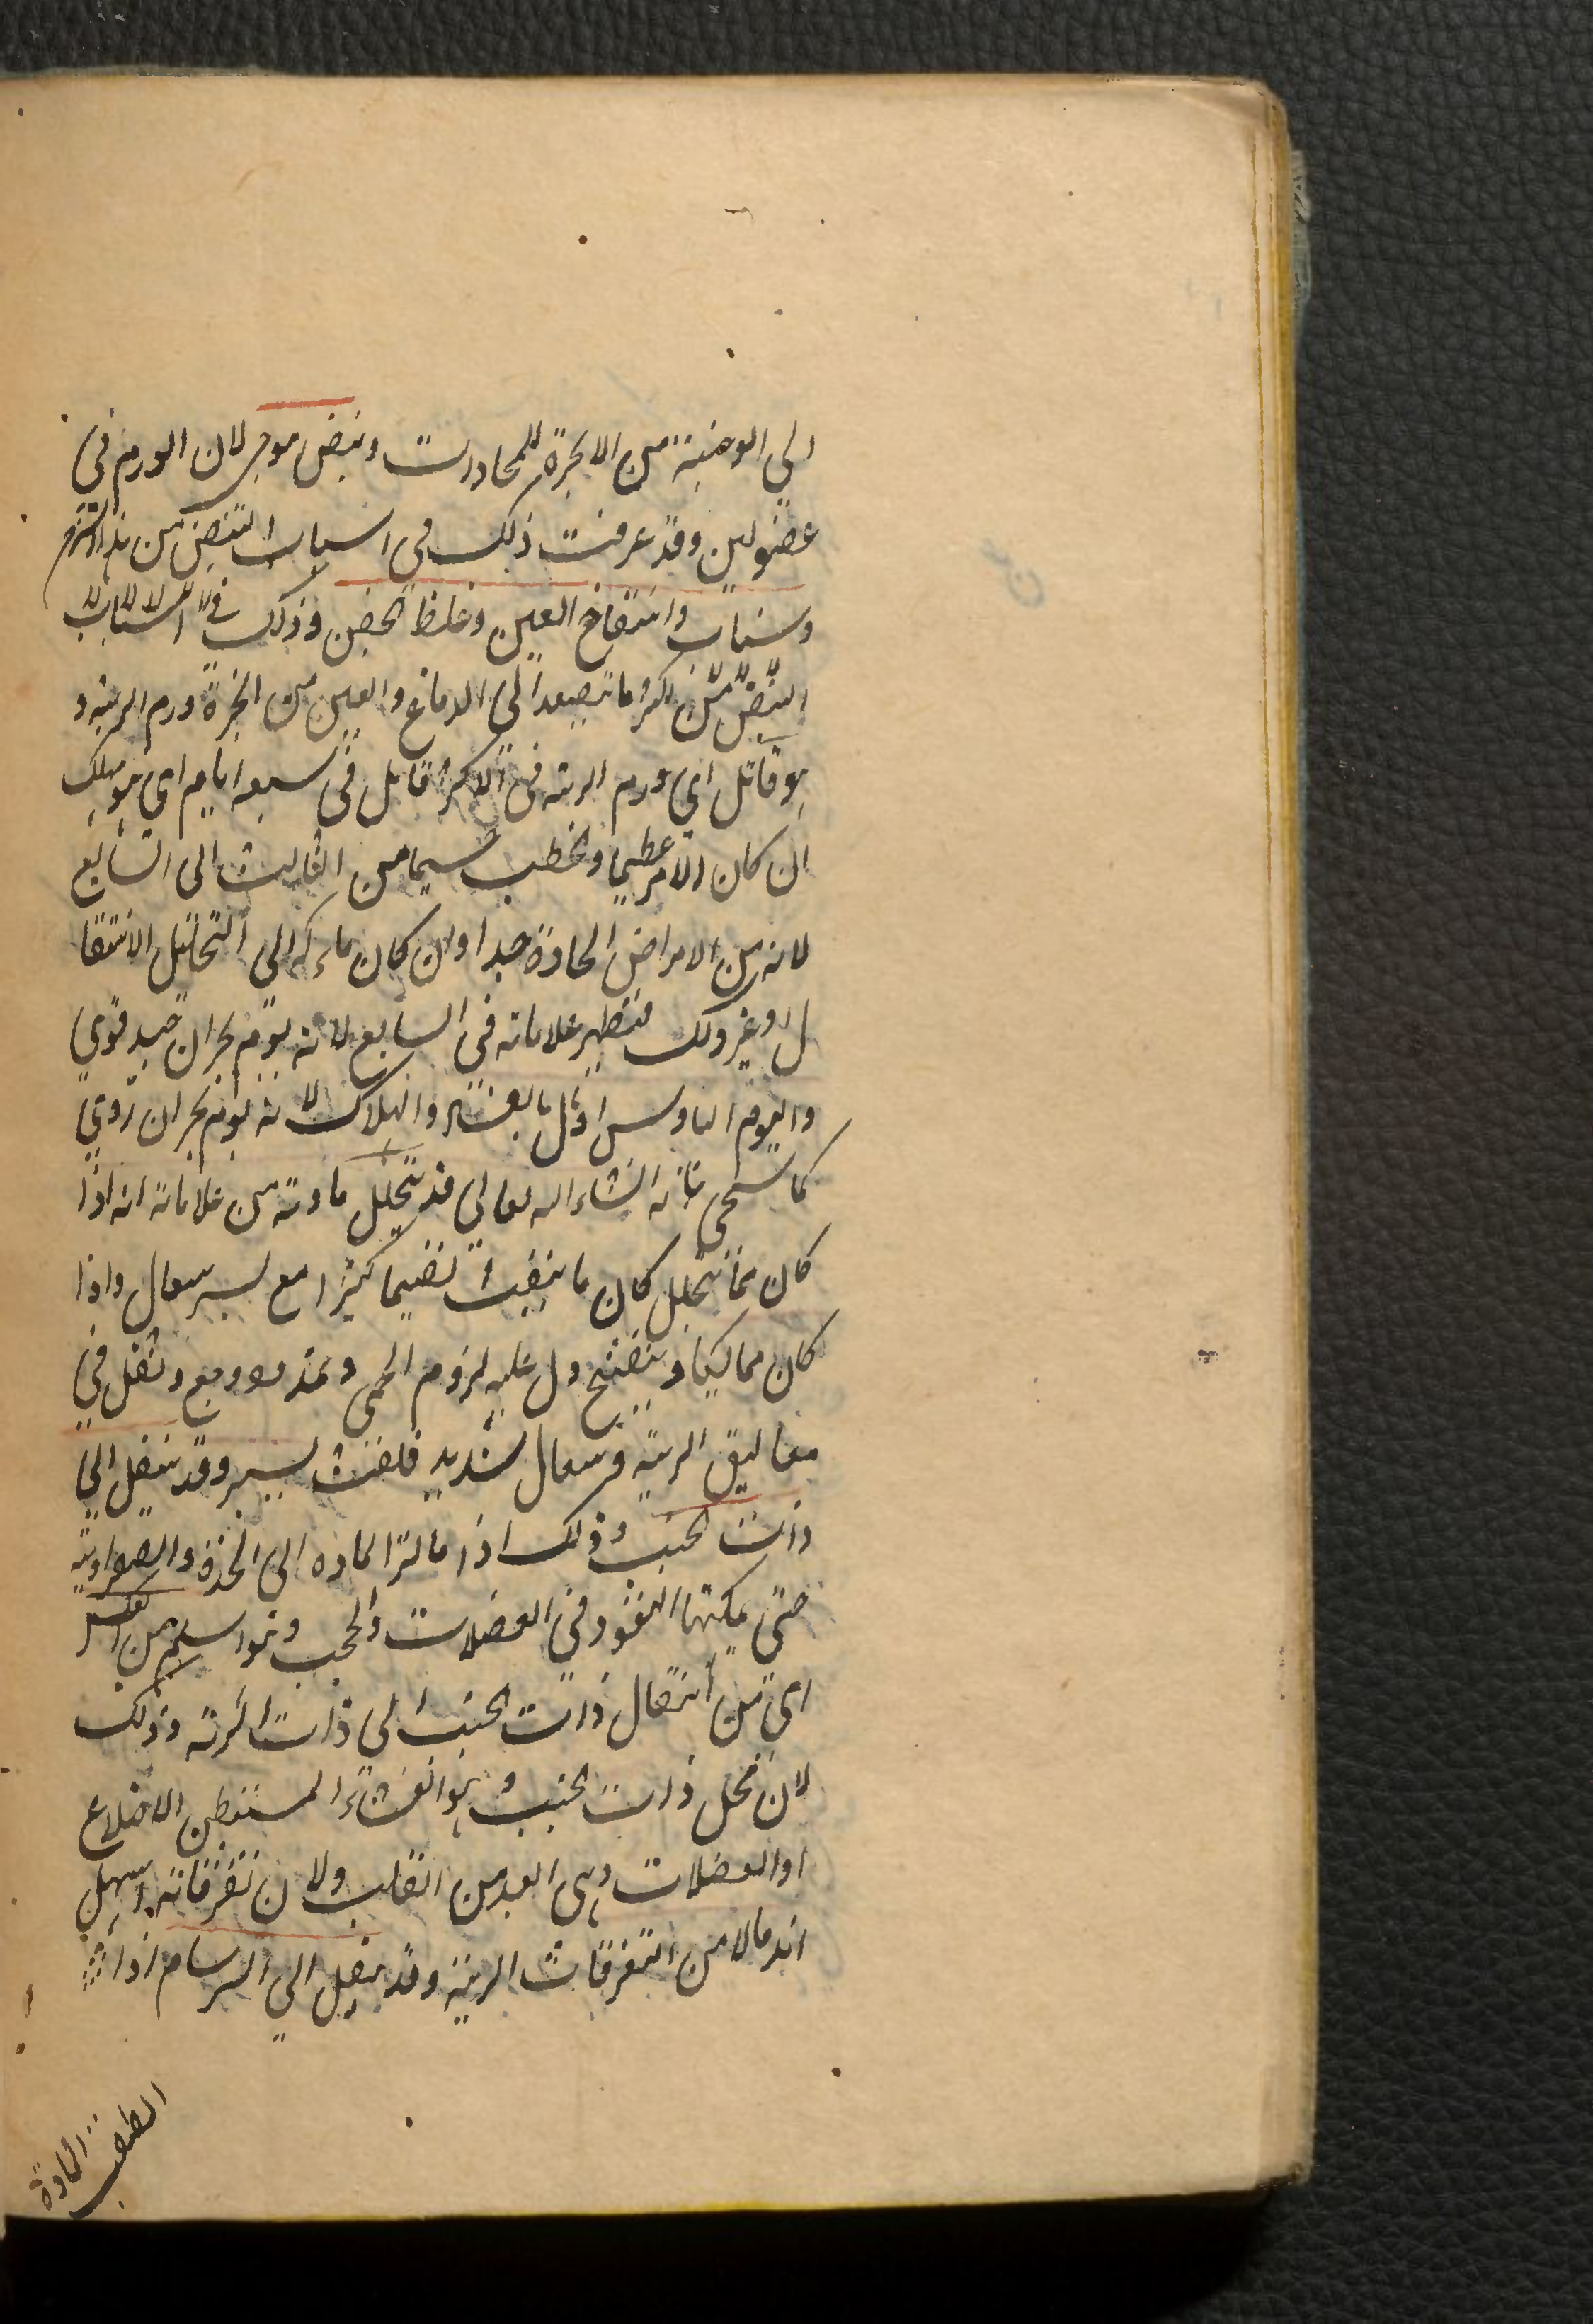 الي الوجنة من الابخرة للمحادرات ونبض موجي لان الورم في
عضو لين وقد عرفت ذلك في اسباب النبض من
وسبات وانتفاخ العين وغلظ الجفن وذلك في اسباب
النبض من لكثرة ما تصعد الى الدماغ والعين من ابخرة ورم الرية و
هو قاتل اي ورم الرية في الاكثر قاتل في سبعة ايام اي هو مهلك
ان كان الامر عظيما وخطب سيما من الثالث الى السابع
لانه من الامراض الحادة جدا وان كان ماءله الى التحليل الانتقا
ل او غير ذلك فتظهر علاماته في السابع لانه يوم بحران جيد قوي
واليوم السادس اول بالعشر والهلاك لانه يوم بحران ردي
كما سيجى بيانه انشاء الله تعالى قد يتحلل مادته من علاماته انه اذا
كان مما يتحلل كان ما ينفث نضيجا كثيرا مع يسر سعال واذا
كان مما يكاد ينفتح دل عليه لزوم الحمى وتمدد ووجع وثقل في
معاليق الرية وسعال شديد فلنفث يسير وقد ينتقل الى
ذات الجنب وذلك اذا مالت المادة الى الحدة والصفراوية
حتى يمكنها النفوذ في العضلات والحجب وهو اسلم من العكس
اي من انتقال ذات الجنب الى ذات الرية وذلك
لان محل ذات الجنب وهو الغشاء المستبطن الاضلاع
او العضلات وهي ابعد من القلب ولان تفرقاته اسهل
اندمالا من التفرقات الرية وقد ينتقل الي السرسام اذا
المادة